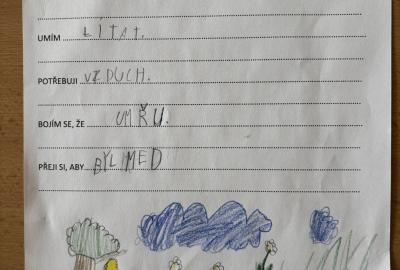 UMÍM LÍTAT.
POTŘEBUJI VZDUCH.
BOJÍM SE, ŽE UMŘU.
PŘEJI SI, ABY BYL MED